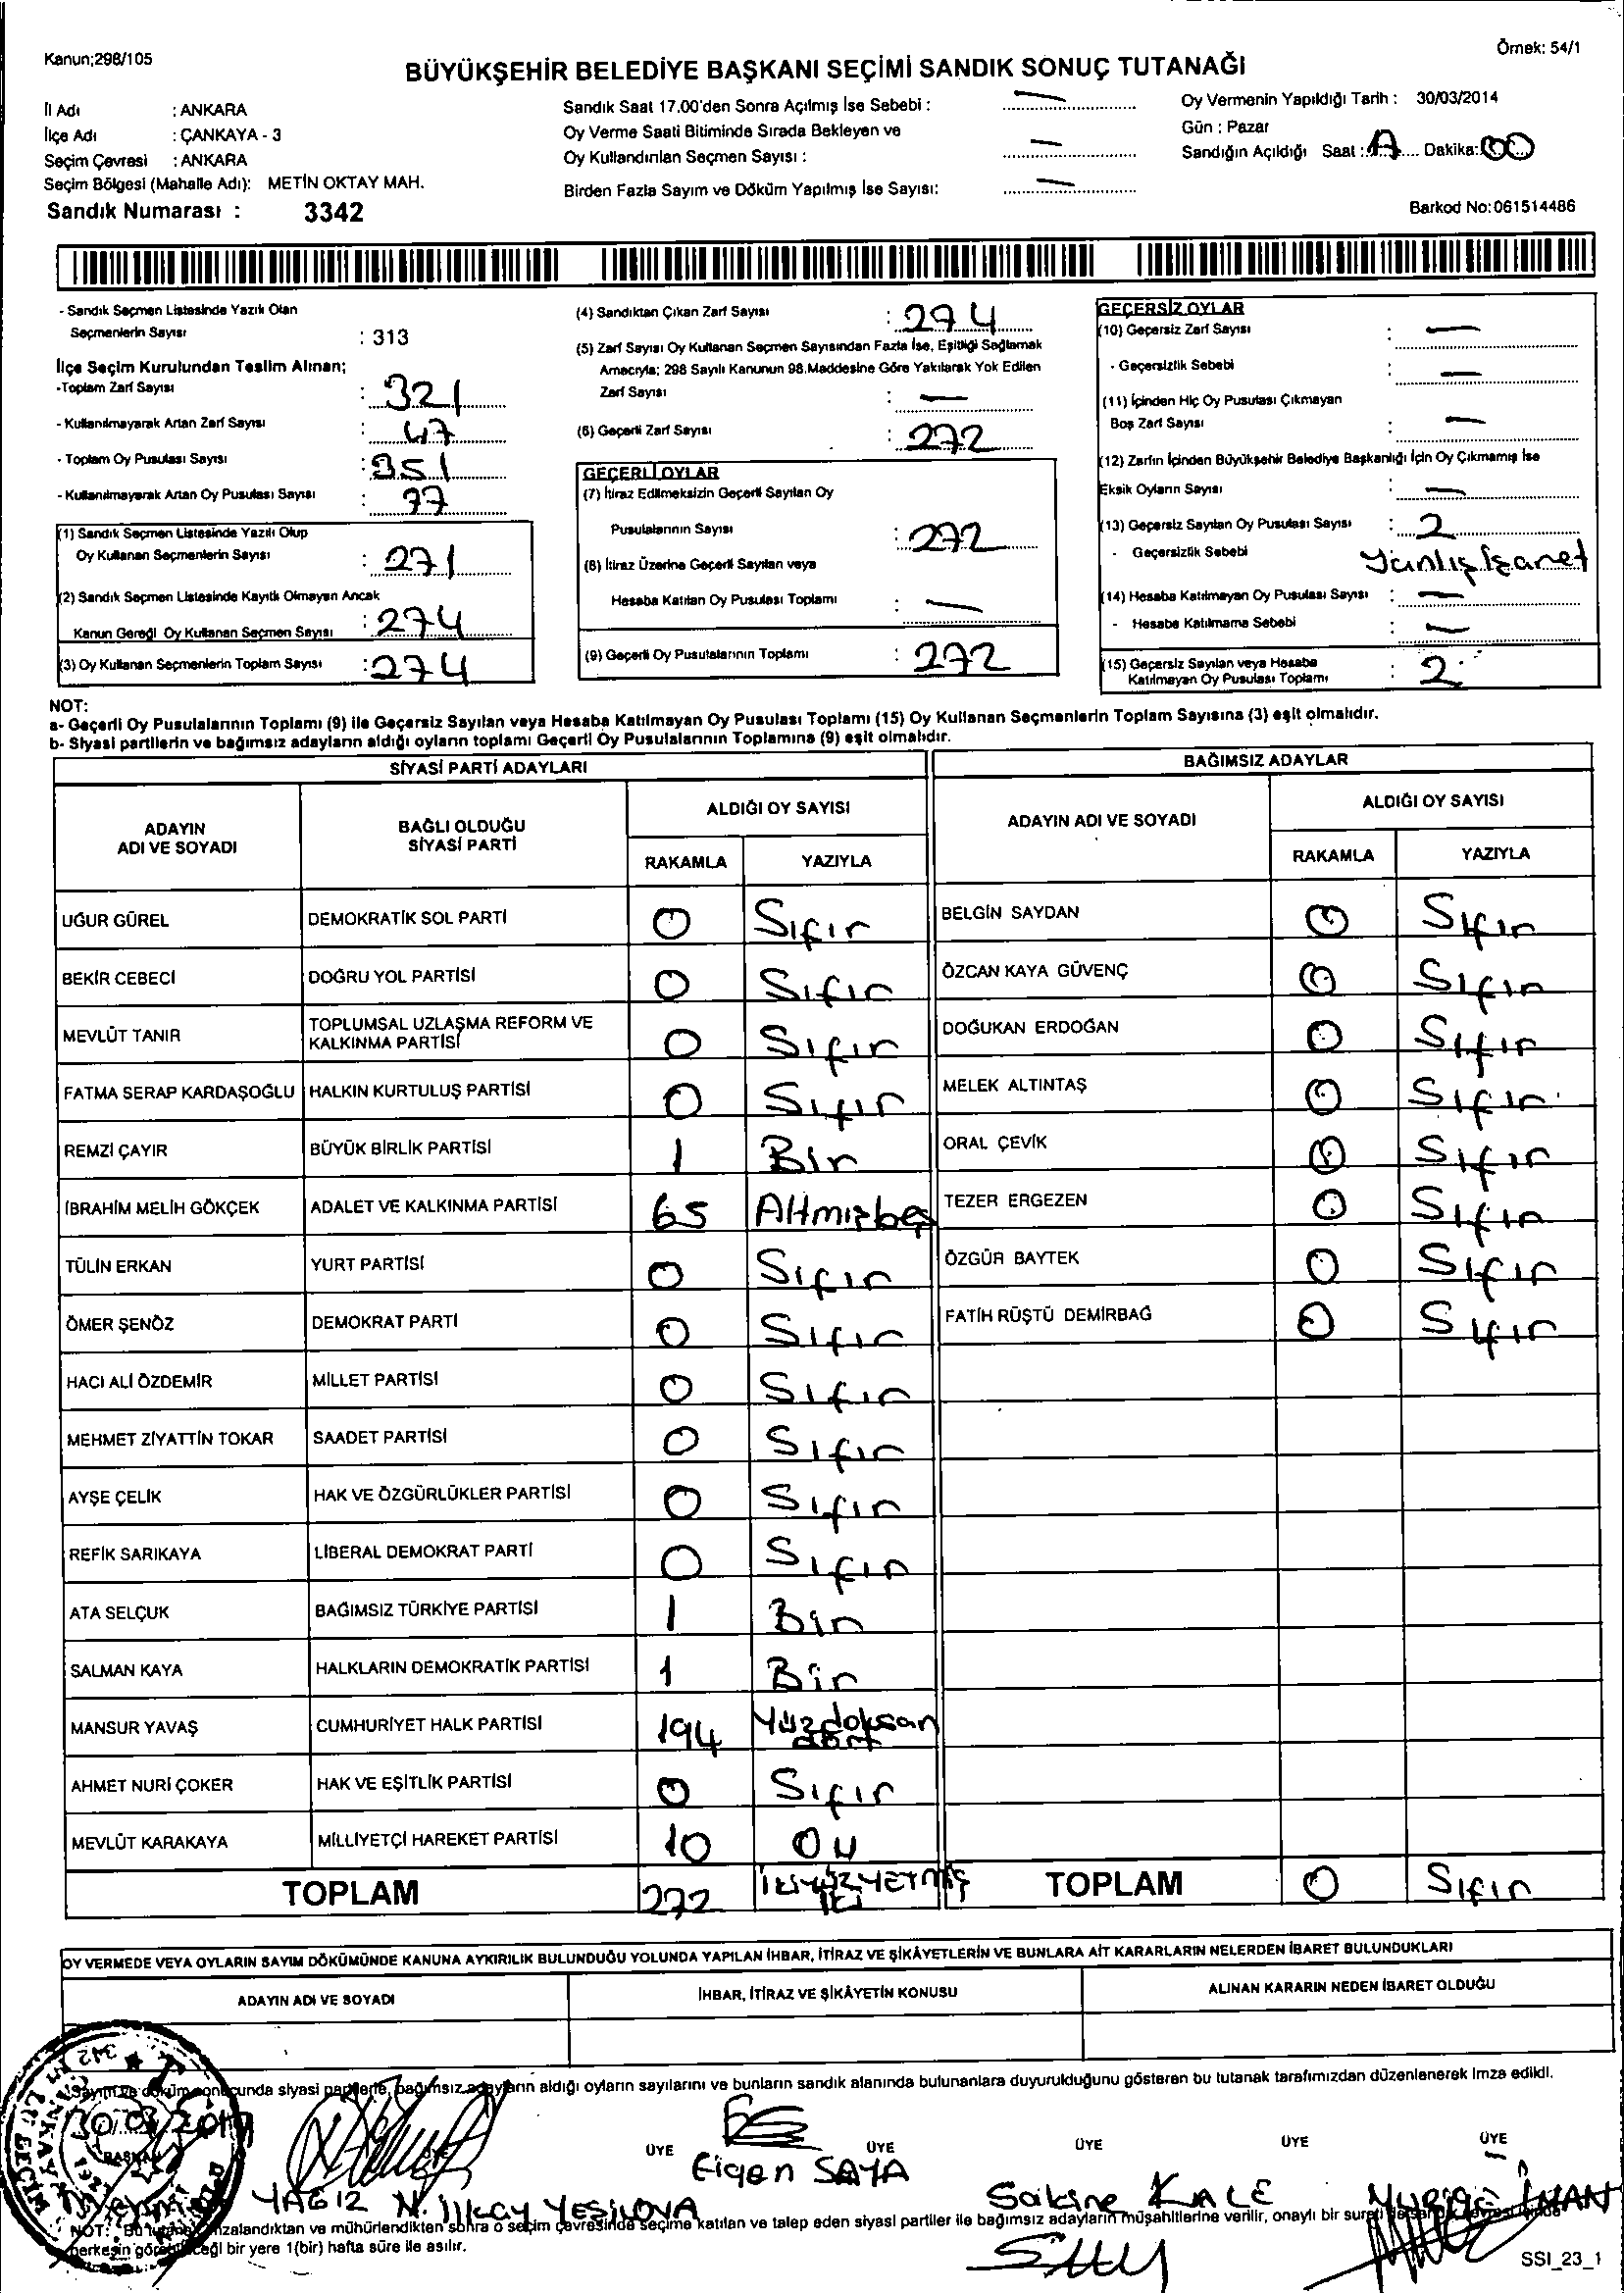 Kanun;298/105
Örnek: 54/1
BÜYÜKŞEHİR BELEDİYE BAŞKANI SEÇİMİ SANDIK SONUÇ TUTANAĞI
İl Adı : ANKARA
İlçe Adı : ÇANKAYA - 3
Seçim Çevresi : ANKARA
Seçim Bölgesi (Mahalle Adı): METİN OKTAY MAH.
Sandık Numarası : 3342
Sandık Saat 17.00'den Sonra Açılmış İse Sebebi : —
Oy Verme Saati Bitiminde Sırada Bekleyen ve
Oy Kullandırılan Seçmen Sayısı : —
Birden Fazla Sayım ve Döküm Yapılmış İse Sayısı: —
Oy Vermenin Yapıldığı Tarih : 30/03/2014
Gün : Pazar
Sandığın Açıldığı Saat : Dakika: 00
Barkod No:061514486
- Sandık Seçmen Listesinde Yazılı Olan
Seçmenlerin Sayısı : 313
İlçe Seçim Kurulundan Teslim Alınan;
-Toplam Zarf Sayısı : 321
- Kullanılmayarak Artan Zarf Sayısı : 47
- Toplam Oy Pusulası Sayısı : 351
- Kullanılmayarak Artan Oy Pusulası Sayısı : 77
(1) Sandık Seçmen Listesinde Yazılı Olup
Oy Kullanan Seçmenlerin Sayısı : 271
(2) Sandık Seçmen Listesinde Kayıtlı Olmayan Ancak
Kanun Gereği Oy Kullanan Seçmen Sayısı : 274
(3) Oy Kullanan Seçmenlerin Toplam Sayısı : 274
(4) Sandıktan Çıkan Zarf Sayısı : 274
(5) Zarf Sayısı Oy Kullanan Seçmen Sayısından Fazla İse, Eşitliği Sağlamak
Amacıyla; 298 Sayılı Kanunun 98.Maddesine Göre Yakılarak Yok Edilen
Zarf Sayısı : —
(6) Geçerli Zarf Sayısı : 272
GEÇERLİ OYLAR
(7) İtiraz Edilmeksizin Geçerli Sayılan Oy
Pusulalarının Sayısı : 272
(8) İtiraz Üzerine Geçerli Sayılan veya
Hesaba Katılan Oy Pusulası Toplamı : —
(9) Geçerli Oy Pusulalarının Toplamı : 272
GEÇERSİZ OYLAR
(10) Geçersiz Zarf Sayısı : —
- Geçersizlik Sebebi : —
(11) İçinden Hiç Oy Pusulası Çıkmayan
Boş Zarf Sayısı : —
(12) Zarfın İçinden Büyükşehir Belediye Başkanlığı İçin Oy Çıkmamış İse
Eksik Oyların Sayısı : —
(13) Geçersiz Sayılan Oy Pusulası Sayısı : 2
- Geçersizlik Sebebi Yanlış İşaret
(14) Hesaba Katılmayan Oy Pusulası Sayısı : —
- Hesaba Katılmama Sebebi : —
(15) Geçersiz Sayılan veya Hesaba
Katılmayan Oy Pusulası Toplamı : 2
NOT:
a- Geçerli Oy Pusulalarının Toplamı (9) ile Geçersiz Sayılan veya Hesaba Katılmayan Oy Pusulası Toplamı (15) Oy Kullanan Seçmenlerin Toplam Sayısına (3) eşit olmalıdır.
b- Siyasi partilerin ve bağımsız adayların aldığı oyların toplamı Geçerli Oy Pusulalarının Toplamına (9) eşit olmalıdır.
SİYASİ PARTİ ADAYLARI
ADAYIN ADI VE SOYADI BAĞLI OLDUĞU SİYASİ PARTİ ALDIĞI OY SAYISI
RAKAMLA YAZIYLA
UĞUR GÜREL DEMOKRATİK SOL PARTİ 0 Sıfır
BEKİR CEBECİ DOĞRU YOL PARTİSİ 0 Sıfır
MEVLÜT TANIR TOPLUMSAL UZLAŞMA REFORM VE KALKINMA PARTİSİ 0 Sıfır
FATMA SERAP KARDAŞOĞLU HALKIN KURTULUŞ PARTİSİ 0 Sıfır
REMZİ ÇAYIR BÜYÜK BİRLİK PARTİSİ 1 Bir
İBRAHİM MELİH GÖKÇEK ADALET VE KALKINMA PARTİSİ 65 Altmışbeş
TÜLİN ERKAN YURT PARTİSİ 0 Sıfır
ÖMER ŞENÖZ DEMOKRAT PARTİ 0 Sıfır
HACI ALİ ÖZDEMİR MİLLET PARTİSİ 0 Sıfır
MEHMET ZİYATTİN TOKAR SAADET PARTİSİ 0 Sıfır
AYŞE ÇELİK HAK VE ÖZGÜRLÜKLER PARTİSİ 0 Sıfır
REFİK SARIKAYA LİBERAL DEMOKRAT PARTİ 0 Sıfır
ATA SELÇUK BAĞIMSIZ TÜRKİYE PARTİSİ 1 Bir
SALMAN KAYA HALKLARIN DEMOKRATİK PARTİSİ 1 Bir
MANSUR YAVAŞ CUMHURİYET HALK PARTİSİ 194 Yüzdoksan dört
AHMET NURİ ÇOKER HAK VE EŞİTLİK PARTİSİ 0 Sıfır
MEVLÜT KARAKAYA MİLLİYETÇİ HAREKET PARTİSİ 10 ON
TOPLAM 272 İKİYÜZYETMİŞ İKİ
BAĞIMSIZ ADAYLAR
ADAYIN ADI VE SOYADI ALDIĞI OY SAYISI
RAKAMLA YAZIYLA
BELGİN SAYDAN 0 Sıfır
ÖZCAN KAYA GÜVENÇ 0 Sıfır
DOĞUKAN ERDOĞAN 0 Sıfır
MELEK ALTINTAŞ 0 Sıfır
ORAL ÇEVİK 0 Sıfır
TEZER ERGEZEN 0 Sıfır
ÖZGÜR BAYTEK 0 Sıfır
FATİH RÜŞTÜ DEMİRBAĞ 0 Sıfır
TOPLAM 0 Sıfır
OY VERMEDE VEYA OYLARIN SAYIM DÖKÜMÜNDE KANUNA AYKIRILIK BULUNDUĞU YOLUNDA YAPILAN İHBAR, İTİRAZ VE ŞİKÂYETLERİN VE BUNLARA AİT KARARLARIN NELERDEN İBARET BULUNDUKLARI
ADAYIN ADI VE SOYADI İHBAR, İTİRAZ VE ŞİKÂYETİN KONUSU ALINAN KARARIN NEDEN İBARET OLDUĞU
Sayım ve döküm sonucunda siyasi partilerle, bağımsız adayların aldığı oyların sayılarını ve bunların sandık alanında bulunanlara duyurulduğunu gösteren bu tutanak tarafımızdan düzenlenerek imza edildi.
ÜYE ÜYE ÜYE ÜYE ÜYE
YAĞIZ N. İlkay YEŞİLOVA Eigen SAYA Sakine KALE
NOT: Bu tutanak imzalandıktan ve mühürlendikten sonra o seçim çevresinde seçime katılan ve talep eden siyasi partiler ile bağımsız adayların müşahitlerine verilir, onaylı bir sureti
herkesin görebileceği bir yere 1(bir) hafta süre ile asılır.
SSI_23_1